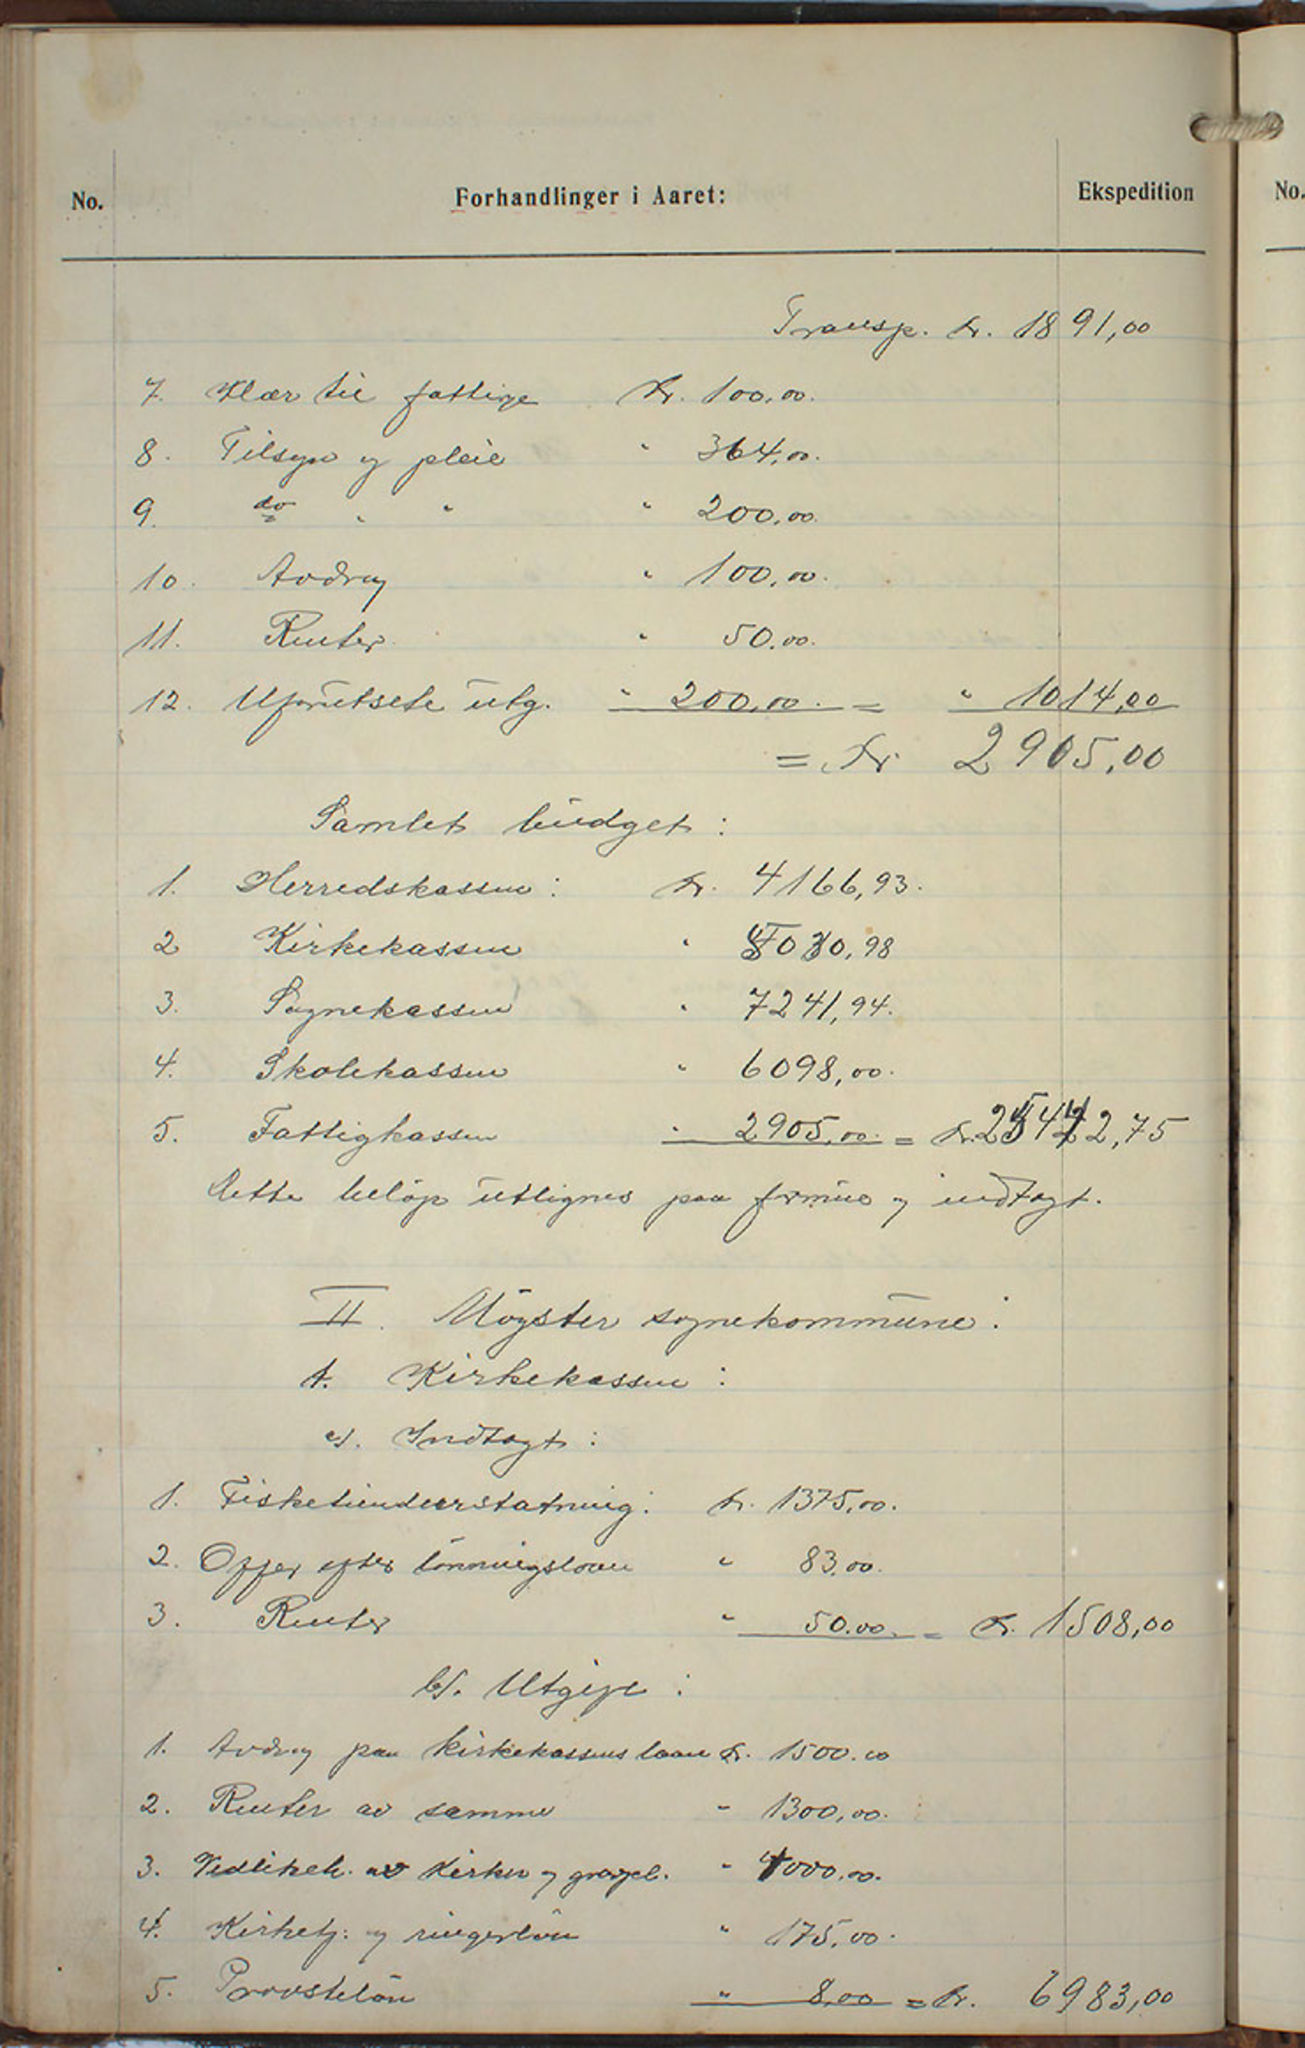 No.
Forhandlinger i Aaret:
Ekspedition
No.
Transp. kr. 1891,00
7. Klær til fattige kr. 100,00.
8. Tilsyn og pleie " 364,00.
9. do " " " 200,00.
10. Avdrag " 100,00.
11. Renter " 50.00.
12. Uforutsete utg. " 200,00. = " 1014,00
= kr 2905,00
Samlet budget:
1. Herredskassen: kr. 4166,93.
2 Kirkekassen " 5030,98
3. Sognekassen " 7241,94.
4. Skolekassen " 6098,00.
5. Fattigkassen " 2905,00. = kr. 25442,75
Dette beløp utlignes paa formue og indtægt.
II. Møgster sognekommune:
1. Kirkekassen:
a). Indtægt:
1. Fisketiendeerstatning: kr. 1375,00.
2. Offer efter lønningsloven " 83.00.
3. Renter " 50.00. = kr. 1508,00
b). Utgift:
1. Avdrag paa kirkekassens laan kr. 1500.00
2. Renter av samme " 1300,00.
3. Vedlikeh. av kirken og gravpl. " 4000,00.
4. Kirketj. og ringerløn " 175,00.
5. Provsteløn " 8,00 = kr. 6983,00